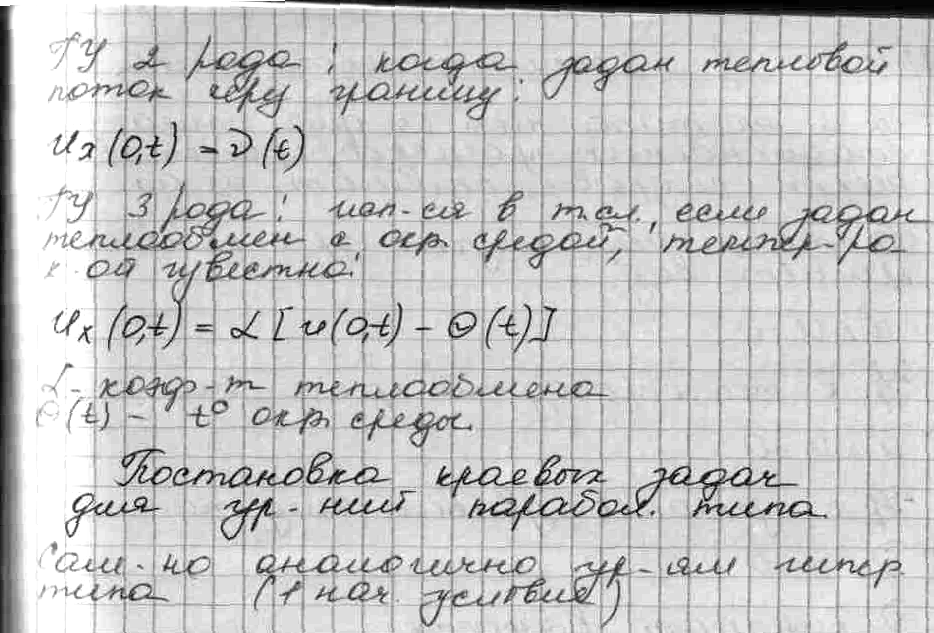 ГУ 2 рода: когда задан тепловой
поток через границу:
u_x(0,t) = ν(t)
ГУ 3 рода: исп-ся в т.сл., если задан
теплообмен с окр. средой, темпер-ра
к-ой известна:
u_x(0,t) = α[u(0,t) - Θ(t)]
α - коэф-т теплообмена
Θ(t) - t° окр. среды.
Постановка краевых задач
для ур-ний парабол. типа.
Сам-но аналогично ур-ям гипер.
типа (1 нач. условие)